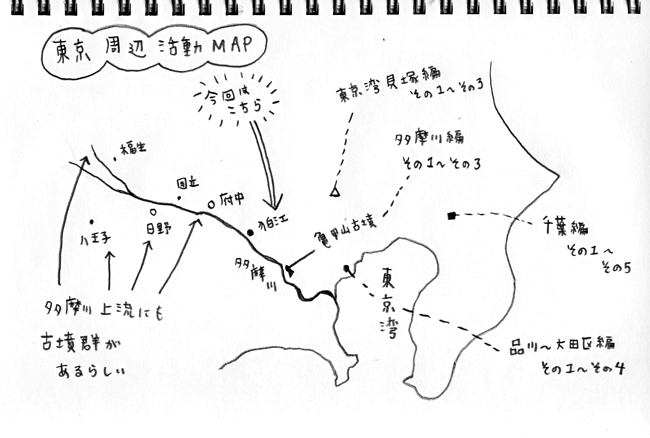 東京周辺活動MAP
今回は
こちら
東京湾貝塚編
その1〜その3
多摩川編
その1〜その3
福生
国立
府中
日野
八王子
狛江
亀甲山古墳
多摩川
千葉編
その1〜
その5
東京湾
多摩川上流にも
古墳群が
あるらしい
品川〜大田区編
その1〜その4